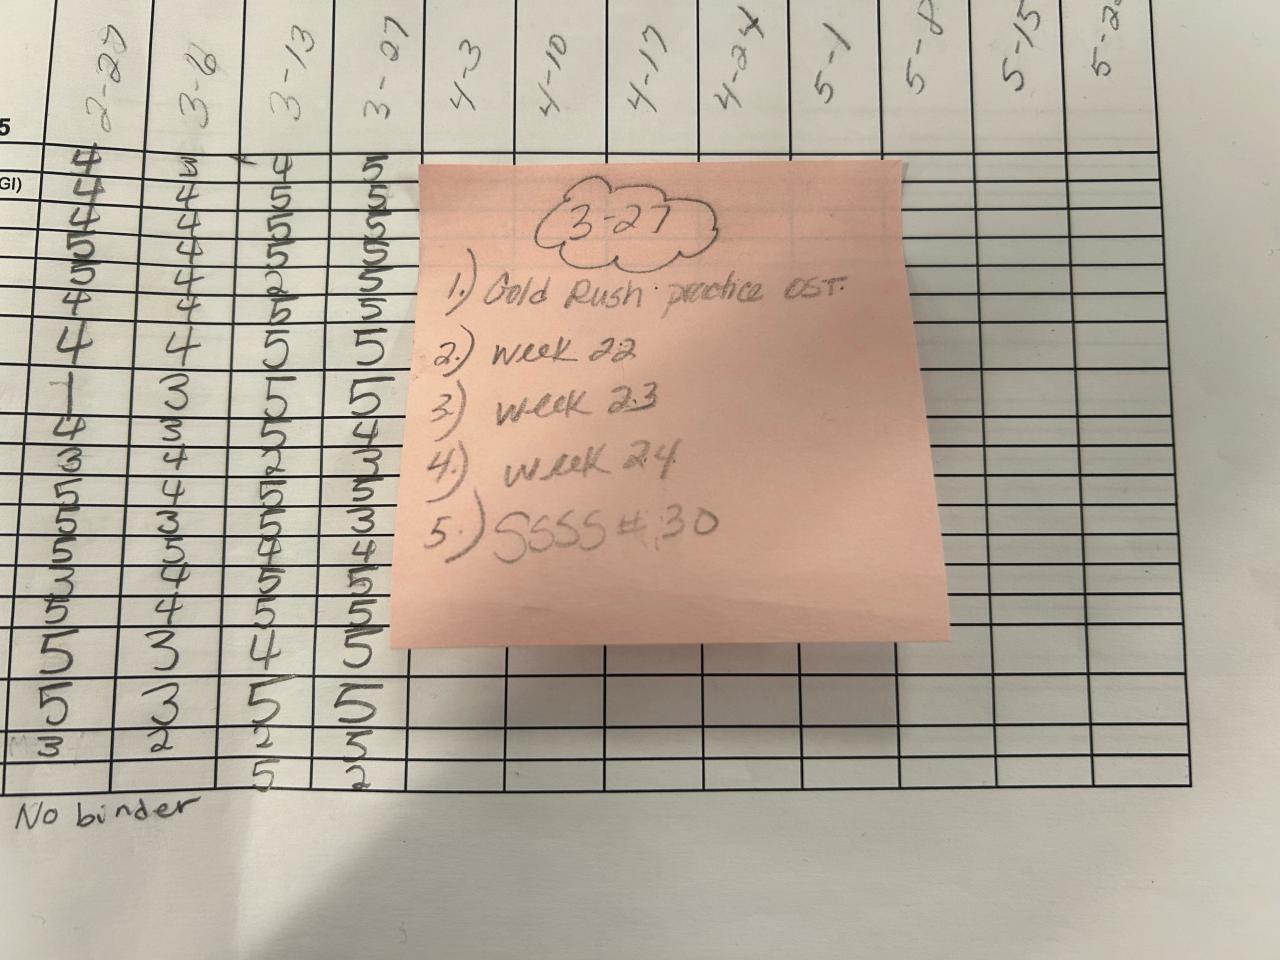 2-27 3-6 3-13 3-27 4-3 4-10 4-17 4-24 5-1 5-8 5-15
5
4 3 4 5
GI) 4 4 5 5
4 4 5 5
5 4 5 5
5 4 2 5
4 4 5 5
4 4 5 5
1 3 5 5
4 3 5 4
3 4 2 3
5 4 5 5
5 3 5 3
5 5 4 4
3 4 5 5
5 4 5 5
5 3 4 5
5 3 5 5
3 2 2 5
5 2
No binder
3-27
1.) Gold Rush practice OST.
2.) week 22
3.) week 23
4.) week 24
5.) SSSS # 30